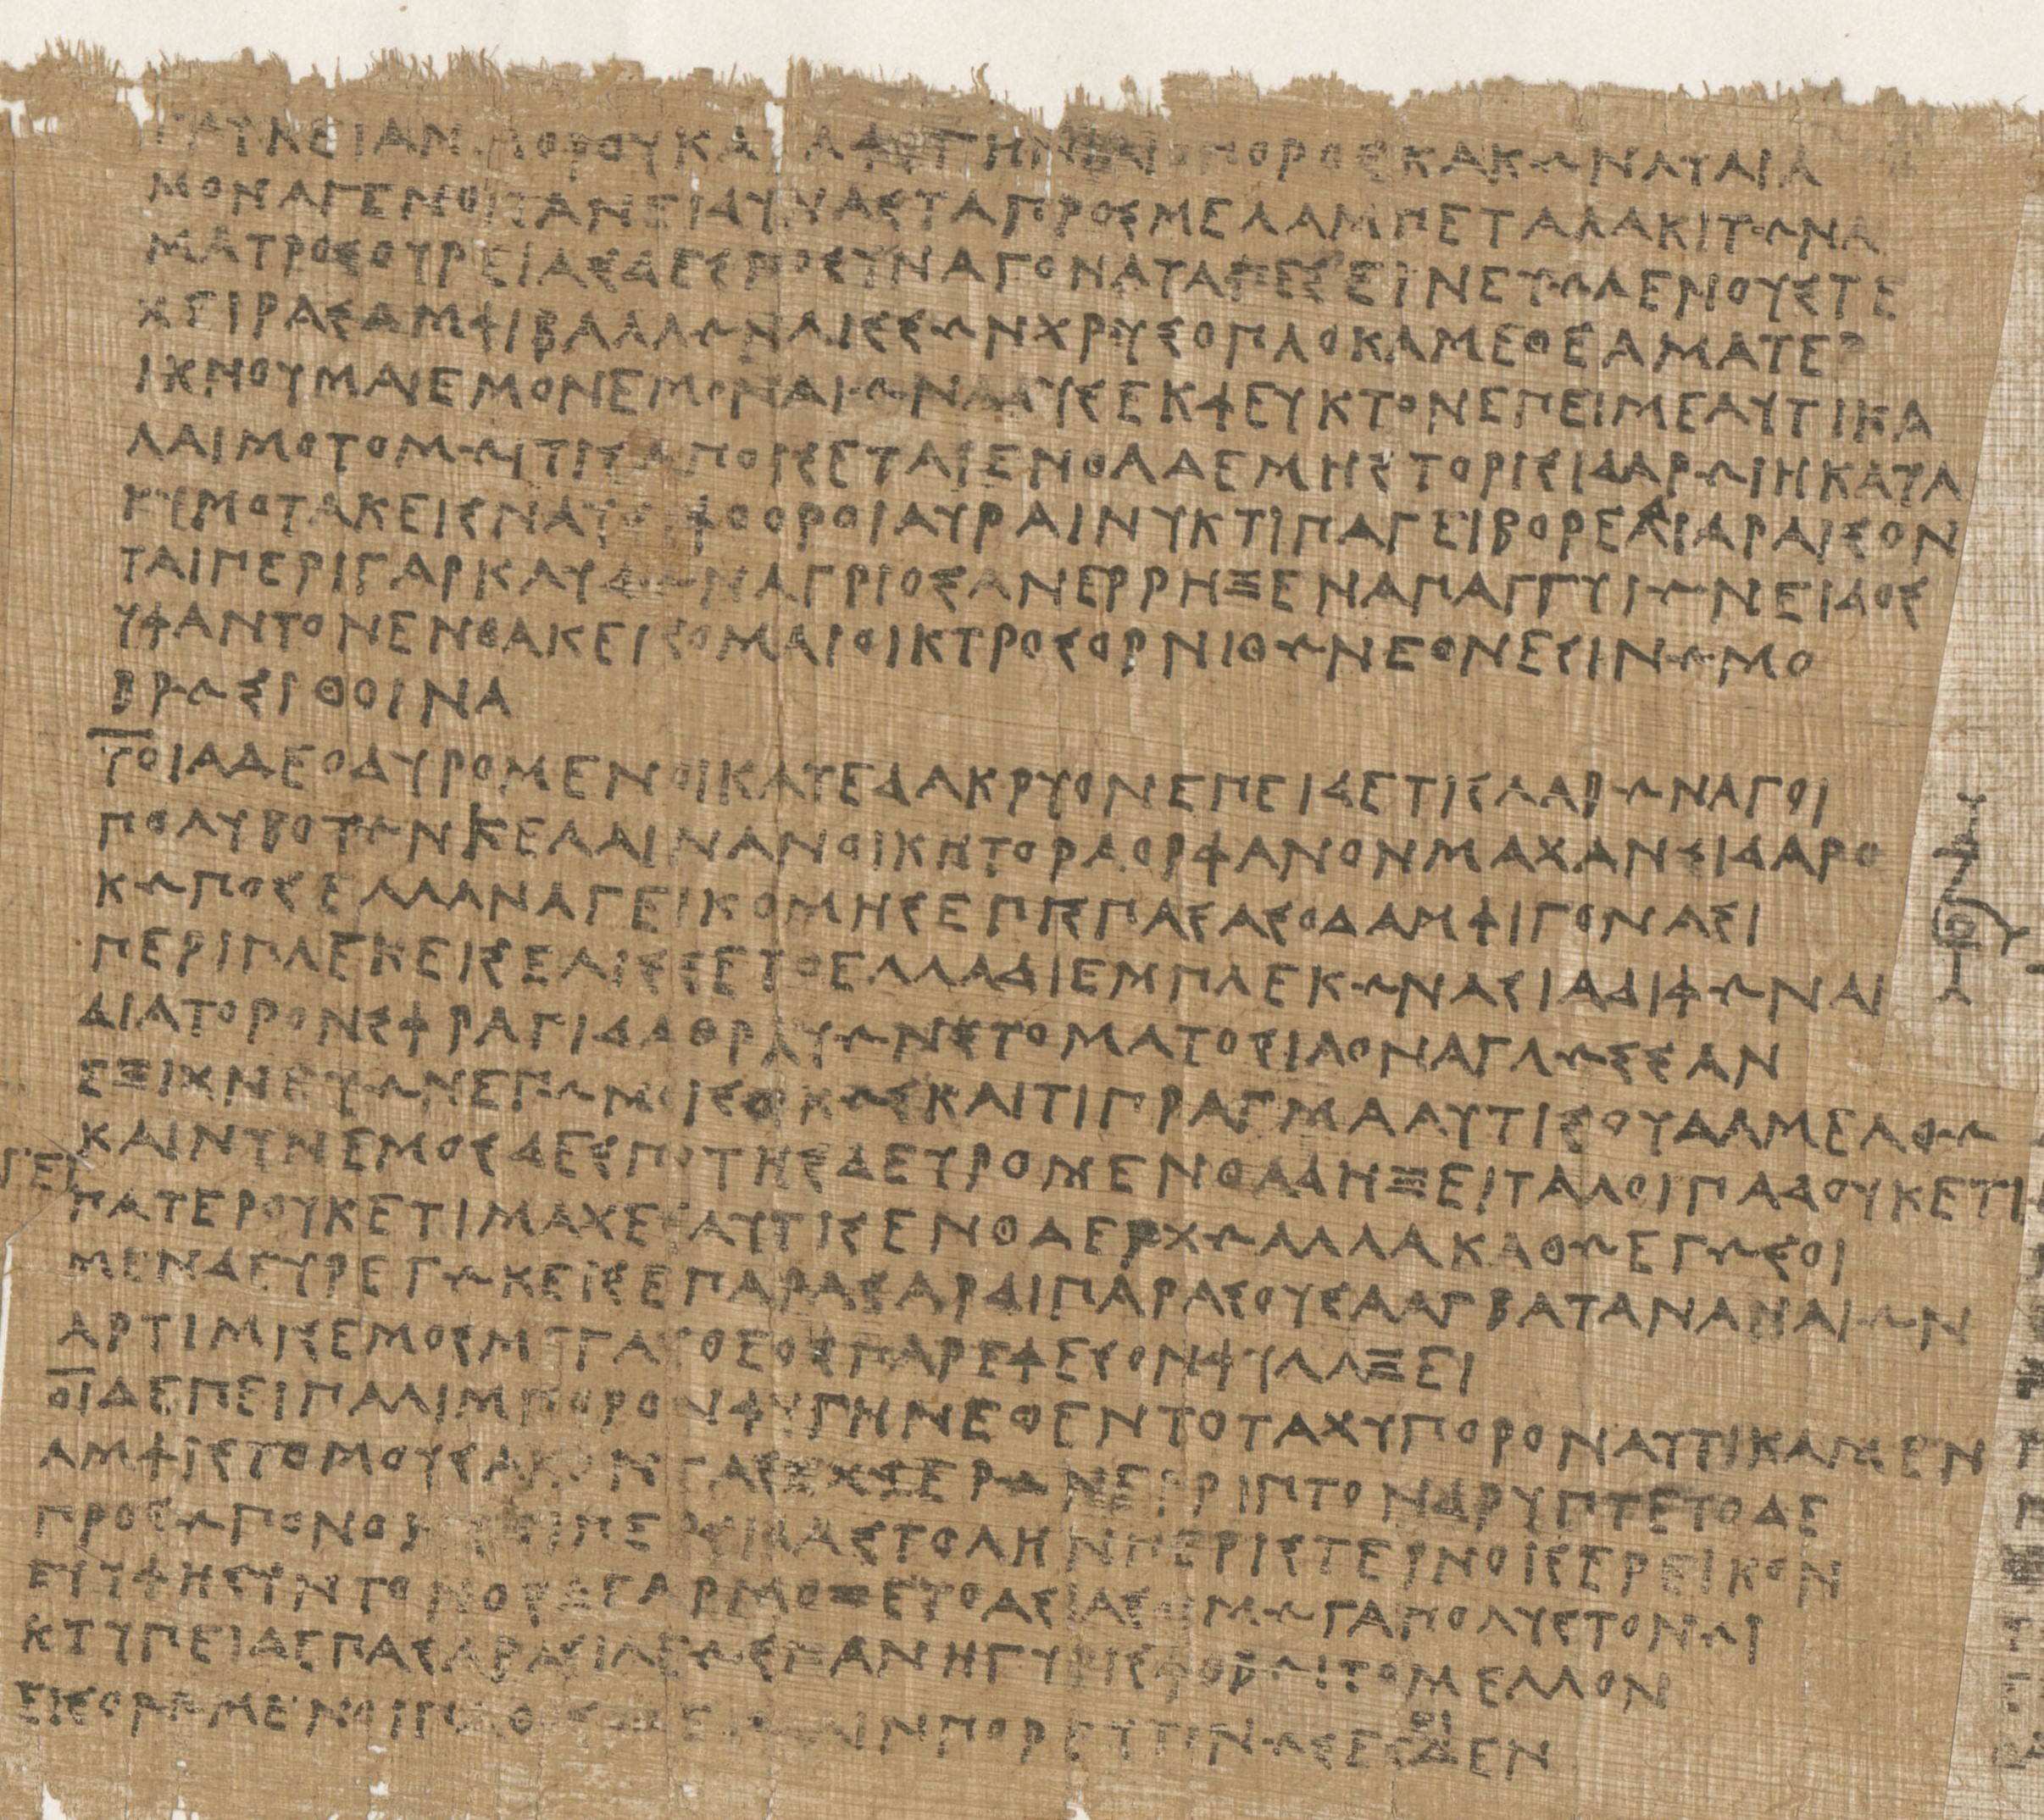 ΓΛΥΚΕΙΑΝΜΟΡΟΥΚΑΤΑΦΥΓΗΝΙΛΙΟΠΟΡΟΣΚΑΚΩΝΛΥΑΙΑ
ΜΟΝΑΓΕΝΟΙΤΑΝΕΙΔΥΝΑΣΤΑΠΡΟΣΜΕΛΑΜΠΕΤΑΛΑΚΙΤΩΝΑ
ΜΑΤΡΟΣΟΥΡΕΙΑΣΔΕΣΠΟΣΥΝΑΓΟΝΑΤΑΠΕΣΕΙΝΕΥΩΛΕΝΟΥΣΤΕ
ΧΕΙΡΑΣΑΜΦΙΒΑΛΛΩΝΛΙΣΣΩΝΧΡΥΣΟΠΛΟΚΑΜΕΘΕΑΜΑΤΕΡ
ΙΚΝΟΥΜΑΙΕΜΟΝΕΜΟΝΑΙΩΝΑΔΥΣΕΚΦΕΥΚΤΟΝΕΠΕΙΜΕΑΥΤΙΚΑ
ΛΑΙΜΟΤΟΜΩΙΤΙΣΑΠΟΙΣΕΤΑΙΕΝΘΑΔΕΜΗΣΤΟΡΙΣΙΔΑΡΩΙΗΚΑΤΑ
ΚΥΜΟΤΑΚΕΙΣΝΑΥΣΙΦΘΟΡΟΙΑΥΡΑΙΝΥΚΤΙΠΑΓΕΙΒΟΡΕΑΙΑΡΑΙΣΟΝ
ΤΑΙΠΕΡΙΓΑΡΚΛΥΔΩΝΑΓΡΙΟΣΑΝΕΡΡΗΞΕΝΑΠΑΓΓΥΙΩΝΕΙΔΟΣ
ΥΦΑΝΤΟΝΕΝΘΑΚΕΙΣΟΜΑΙΟΙΚΤΡΟΣΟΡΝΙΘΩΝΕΘΝΕΣΙΝΩΜΟ
ΒΡΩΣΙΘΟΙΝΑ
ΤΟΙΑΔΕΟΔΥΡΟΜΕΝΟΙΚΑΤΕΔΑΚΡΥΟΝΕΠΕΙΔΕΤΙΣΛΑΒΩΝΑΓΟΙ
ΠΟΛΥΒΟΤΩΝΚΕΛΑΙΝΑΝΟΙΚΗΤΟΡΑΟΡΦΑΝΟΝΜΑΧΑΝΣΙΔΑΡΟ
ΚΩΠΟΣΕΛΛΑΝΑΓΕΙΚΟΜΗΣΕΠΙΣΠΑΣΑΣΟΔΑΜΦΙΓΟΝΑΣΙ
ΠΕΡΙΠΛΕΚΕΙΣΕΛΙΣΣΕΤΟΕΛΛΑΔΙΕΜΠΛΕΚΩΝΑΣΙΑΔΙΦΩΝΑΙ
ΔΙΑΤΟΡΟΝΣΦΡΑΓΙΔΑΘΡΑΥΩΝΣΤΟΜΑΤΟΣΙΑΟΝΑΓΛΩΣΣΑΝ
ΕΞΙΧΝΕΥΩΝΕΓΩΜΟΙΣΟΙΚΩΣΚΑΙΤΙΠΡΑΓΜΑΑΥΤΙΣΟΥΔΑΜΕΛΘΩ
ΚΑΙΝΥΝΕΜΟΣΔΕΣΠΟΤΗΣΔΕΥΡΟΜΕΝΘΑΔΗΞΕΙΤΑΛΟΙΠΑΔΟΥΚΕΤΙ
ΠΑΤΕΡΟΥΚΕΤΙΜΑΧΕΣΑΥΤΙΣΕΝΘΑΔΕΡΧΩΑΛΛΑΚΑΘΩΕΓΩΣΟΙ
ΜΕΝΔΕΥΡΕΓΩΚΕΙΣΕΠΑΡΑΣΑΡΔΙΠΑΡΑΣΟΥΣΑΑΓΒΑΤΑΝΑΝΑΙΩΝ
ΑΡΤΙΜΙΣΕΜΟΣΜΕΓΑΣΘΕΟΣΠΑΡΕΦΕΣΟΝΦΥΛΑΞΕΙ
ΟΙΔΕΠΕΙΠΑΛΙΜΠΟΡΟΝΦΥΓΗΝΕΘΕΝΤΟΤΑΧΥΠΟΡΟΝΑΥΤΙΚΑΜΕΝ
ΑΜΦΙΣΤΟΜΟΥΣΑΚΟΝΤΑΣΕΚΧΕΡΩΝΕΡΡΙΠΤΟΝΔΡΥΠΤΕΤΟΔΕ
ΠΡΟΣΩΠΟΝΟΝΥΞΙΠΕΡΣΙΔΑΣΤΟΛΗΝΠΕΡΙΣΤΕΡΝΟΙΣΕΡΕΙΚΟΝ
ΕΥΥΦΗΣΥΝΤΟΝΟΣΔΑΡΜΟΖΕΤΟΑΣΙΑΣΟΙΜΩΓΑΠΟΛΥΣΤΟΝΩΙ
ΚΤΥΠΕΙΔΕΠΑΣΑΒΑΣΙΛΕΩΣΠΑΝΗΓΥΡΙΣΦΟΒΩΙΤΟΜΕΛΛΟΝ
ΕΙΣΟΡΩΜΕΝΟΙΠΑΘΟΣ ΠΑΛΙΝΠΟΡΕΥΤΟΝΩΣΕΣΙΔΕΝ